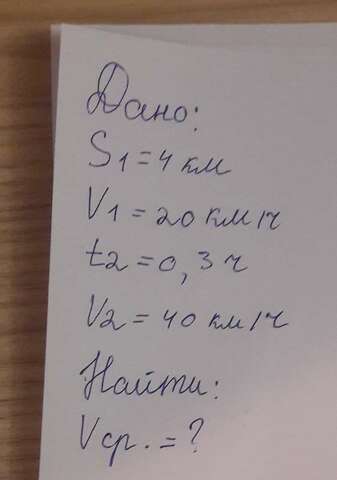 Дано:
S1 = 4 км
V1 = 20 км/ч
t2 = 0,3 ч
V2 = 40 км/ч
Найти:
Vср. = ?